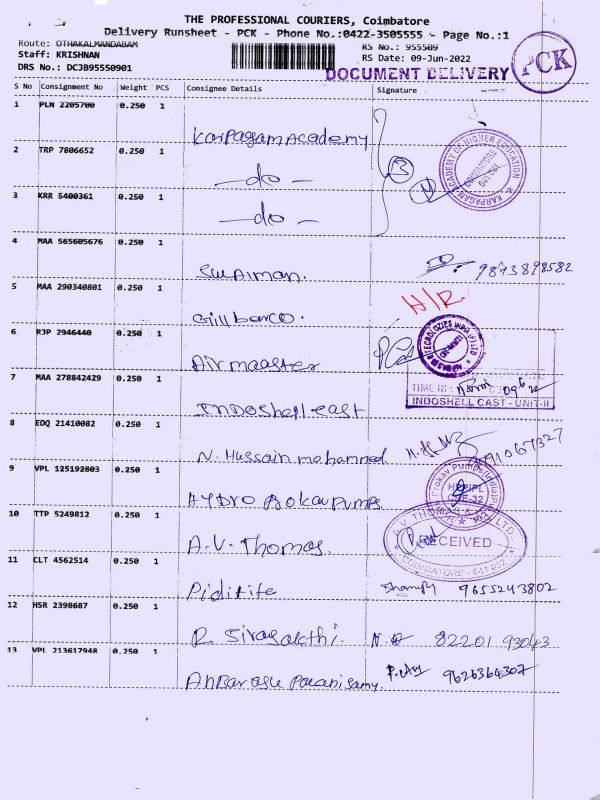 THE PROFESSIONAL COURIERS, Coimbatore
Delivery Runsheet - PCK - Phone No.:0422-3505555 - Page No.:1
Route: OTHAKALMANDABAM
RS No.: 955509
Staff: KRISHNAN
RS Date: 09-Jun-2022
DRS No.: DCJB95550901
DOCUMENT DELIVERY
PCK
S No Consignment No Weight PCS Consignee Details Signature
1 PLN 2205700 0.250 1 Karpagam Academy
KARPAGAM ACADEMY OF HIGHER EDUCATION
2 TRP 7806652 0.250 1 -do-
3
3 KRR 5400361 0.250 1 -do-
4 MAA 565605676 0.250 1 Sulaiman. 9873898582
5 MAA 290340801 0.250 1 Gillbarco. H/R
6 RJP 2946440 0.250 1 Airmaaster
7 MAA 278842429 0.250 1 Indoshell east
TIME IN
INDOSHELL CAST - UNIT-II
8 EDQ 21410082 0.250 1 N. Hussain mohammed
9 VPL 125192803 0.250 1 HYDRO Prokav Pumps
10 TTP 5249812 0.250 1 A.V. Thomas
A.V. THOMAS
RECEIVED
COIMBATORE - 641 032
11 CLT 4562514 0.250 1 Pidilite 9655243802
12 HSR 2398687 0.250 1 R. Sivasakthi. 82201 93043
13 VPL 213617948 0.250 1 Anbarasu Palanisamy 9626364307